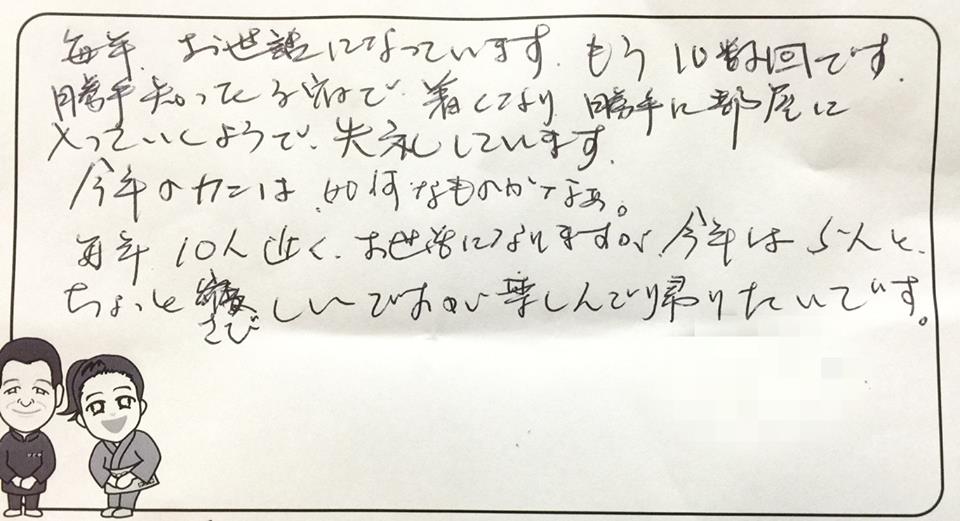 毎年、お世話になっています。もう10数回です。
勝手知ってる宿で、着くなり、勝手に部屋に
入っていくしようで、失礼しています。
今年のカニは、如何なものかなぁ。
毎年10人近く、お世話になりますが、今年は5人と、
ちょっと寂しいですが楽しんで帰りたいです。
さび